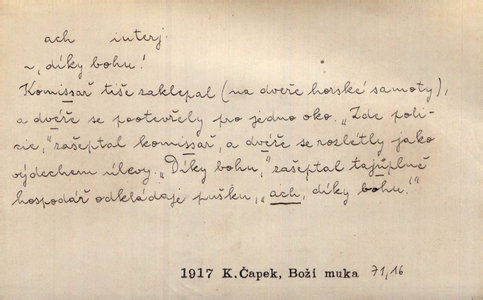 ach interj.
~, díky bohu!
Komissař tiše zaklepal (na dveře horské samoty),
a dvéře se pootevřely pro jedno oko. „Zde poli-
cie,“ zašeptal komissař, a dvéře se rozlétly jako
výdechem úlevy. „Díky bohu,“ zašeptal tajůplně
hospodář odkládaje pušku, „ach, díky bohu!“
1917 K. Čapek, Boží muka 71,16